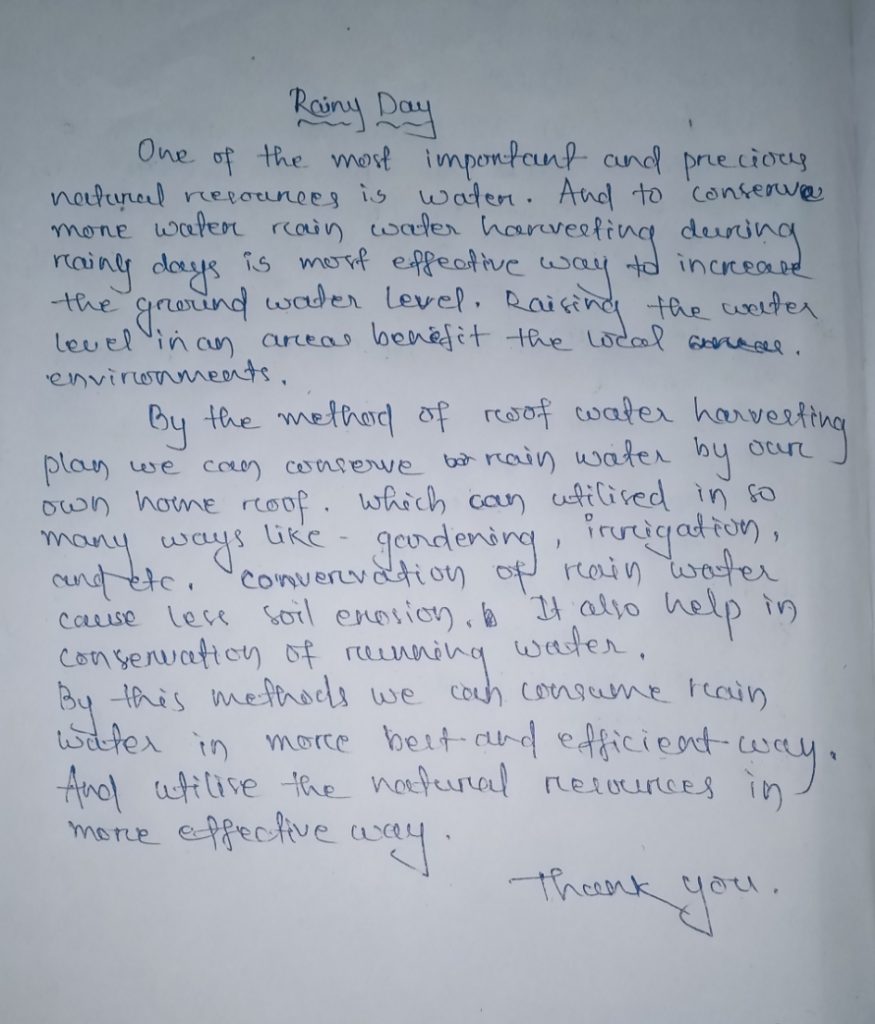 Rainy Day
One of the most important and precious
natural resources is water. And to conserve
more water rain water harvesting during
rainy days is most effective way to increase
the ground water level. Raising the water
level in an areas benefit the local
environments.
By the method of roof water harvesting
plan we can conserve rain water by our
own home roof. which can utilised in so
many ways like - gardening, irrigation,
and etc. convervation of rain water
cause less soil erosion. It also help in
conservation of running water.
By this methods we can consume rain
water in more best and efficient way.
And utilise the natural resources in
more effective way.
Thank you.